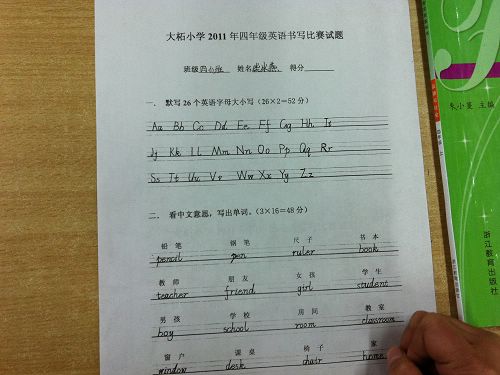 大柘小学 2011 年四年级英语书写比赛试题
班级 姓名 得分
一. 默写 26 个英语字母大小写（26×2=52 分）
Aa Bb Cc Dd Ee Ff Gg Hh Ii
Jj Kk Ll Mm Nn Oo Pp Qq Rr
Ss Tt Uu Vv Ww Xx Yy Zz
二. 看中文意思，写出单词。（3×16=48 分）
铅 笔 钢 笔 尺 子 书 本
pencil pen ruler book
教 师 朋 友 女 孩 学 生
teacher friend girl student
男 孩 学 校 房 间 教 室
boy school room classroom
窗 户 课 桌 椅 子 家
window desk chair home
朱小蔓 主编
浙江教育出版社